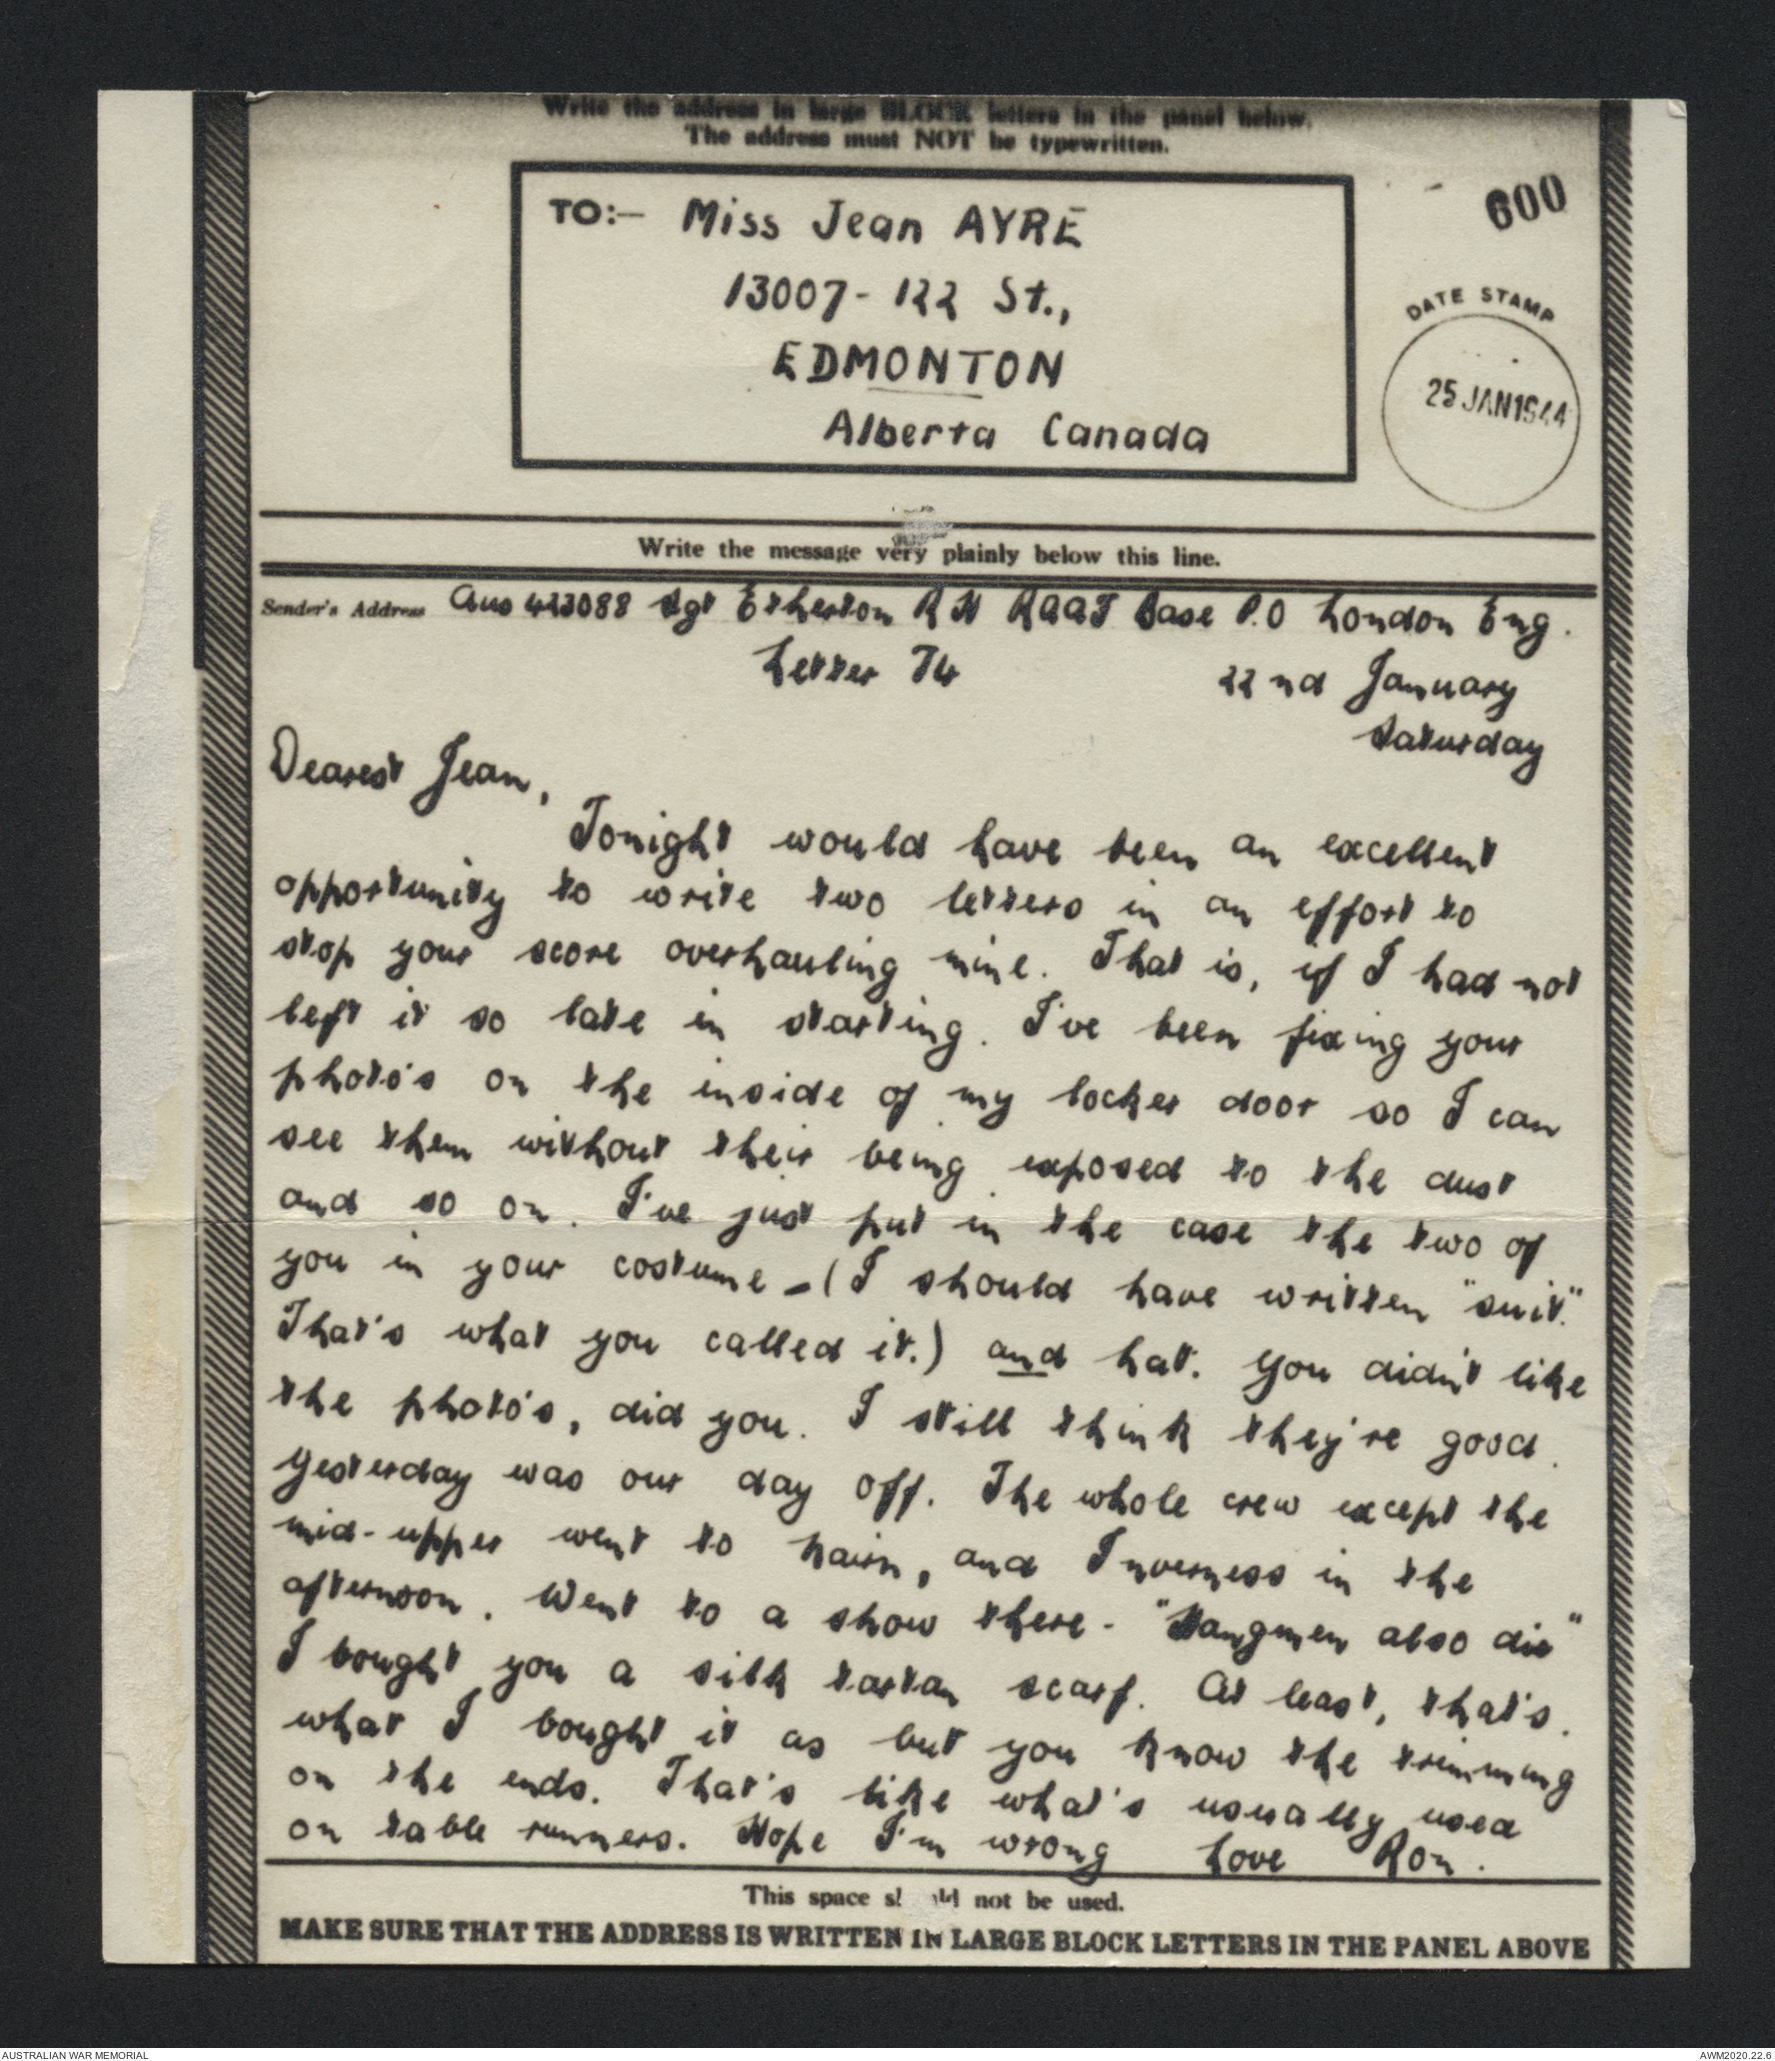 Write the address in large BLOCK letters in the panel below.
The address must NOT be typewritten.
TO:- Miss Jean AYRE
13007-122 St.,
EDMONTON
Alberta Canada
600
DATE STAMP
25 JAN 1944
Write the message very plainly below this line.
Sender's Address Aus 423088 Sgt Etherton R N RAAF Base P.O London Eng.
Letter 74
22nd January
Saturday
Dearest Jean,
Tonight would have been an excellent
opportunity to write two letters in an effort to
stop your score overhauling mine. That is, if I had not
left it so late in starting. I've been fixing your
photo's on the inside of my locker door so I can
see them without their being exposed to the dust
and so on. I've just put in the case the two of
you in your costume - (I should have written "suit."
That's what you called it.) and hat. You didn't like
the photo's, did you. I still think they're good.
Yesterday was our day off. The whole crew except the
mid-upper went to Nairn, and Inverness in the
afternoon. Went to a show there - "Hangmen also die"
I bought you a silk tartan scarf. At least, that's.
what I bought it as but you know the trimming
on the ends. That's like what's usually used
on table runners. Hope I'm wrong Love Ron.
This space not be used.
MAKE SURE THAT THE ADDRESS IS WRITTEN IN LARGE BLOCK LETTERS IN THE PANEL ABOVE
AUSTRALIAN WAR MEMORIAL
AWM2020.22.6